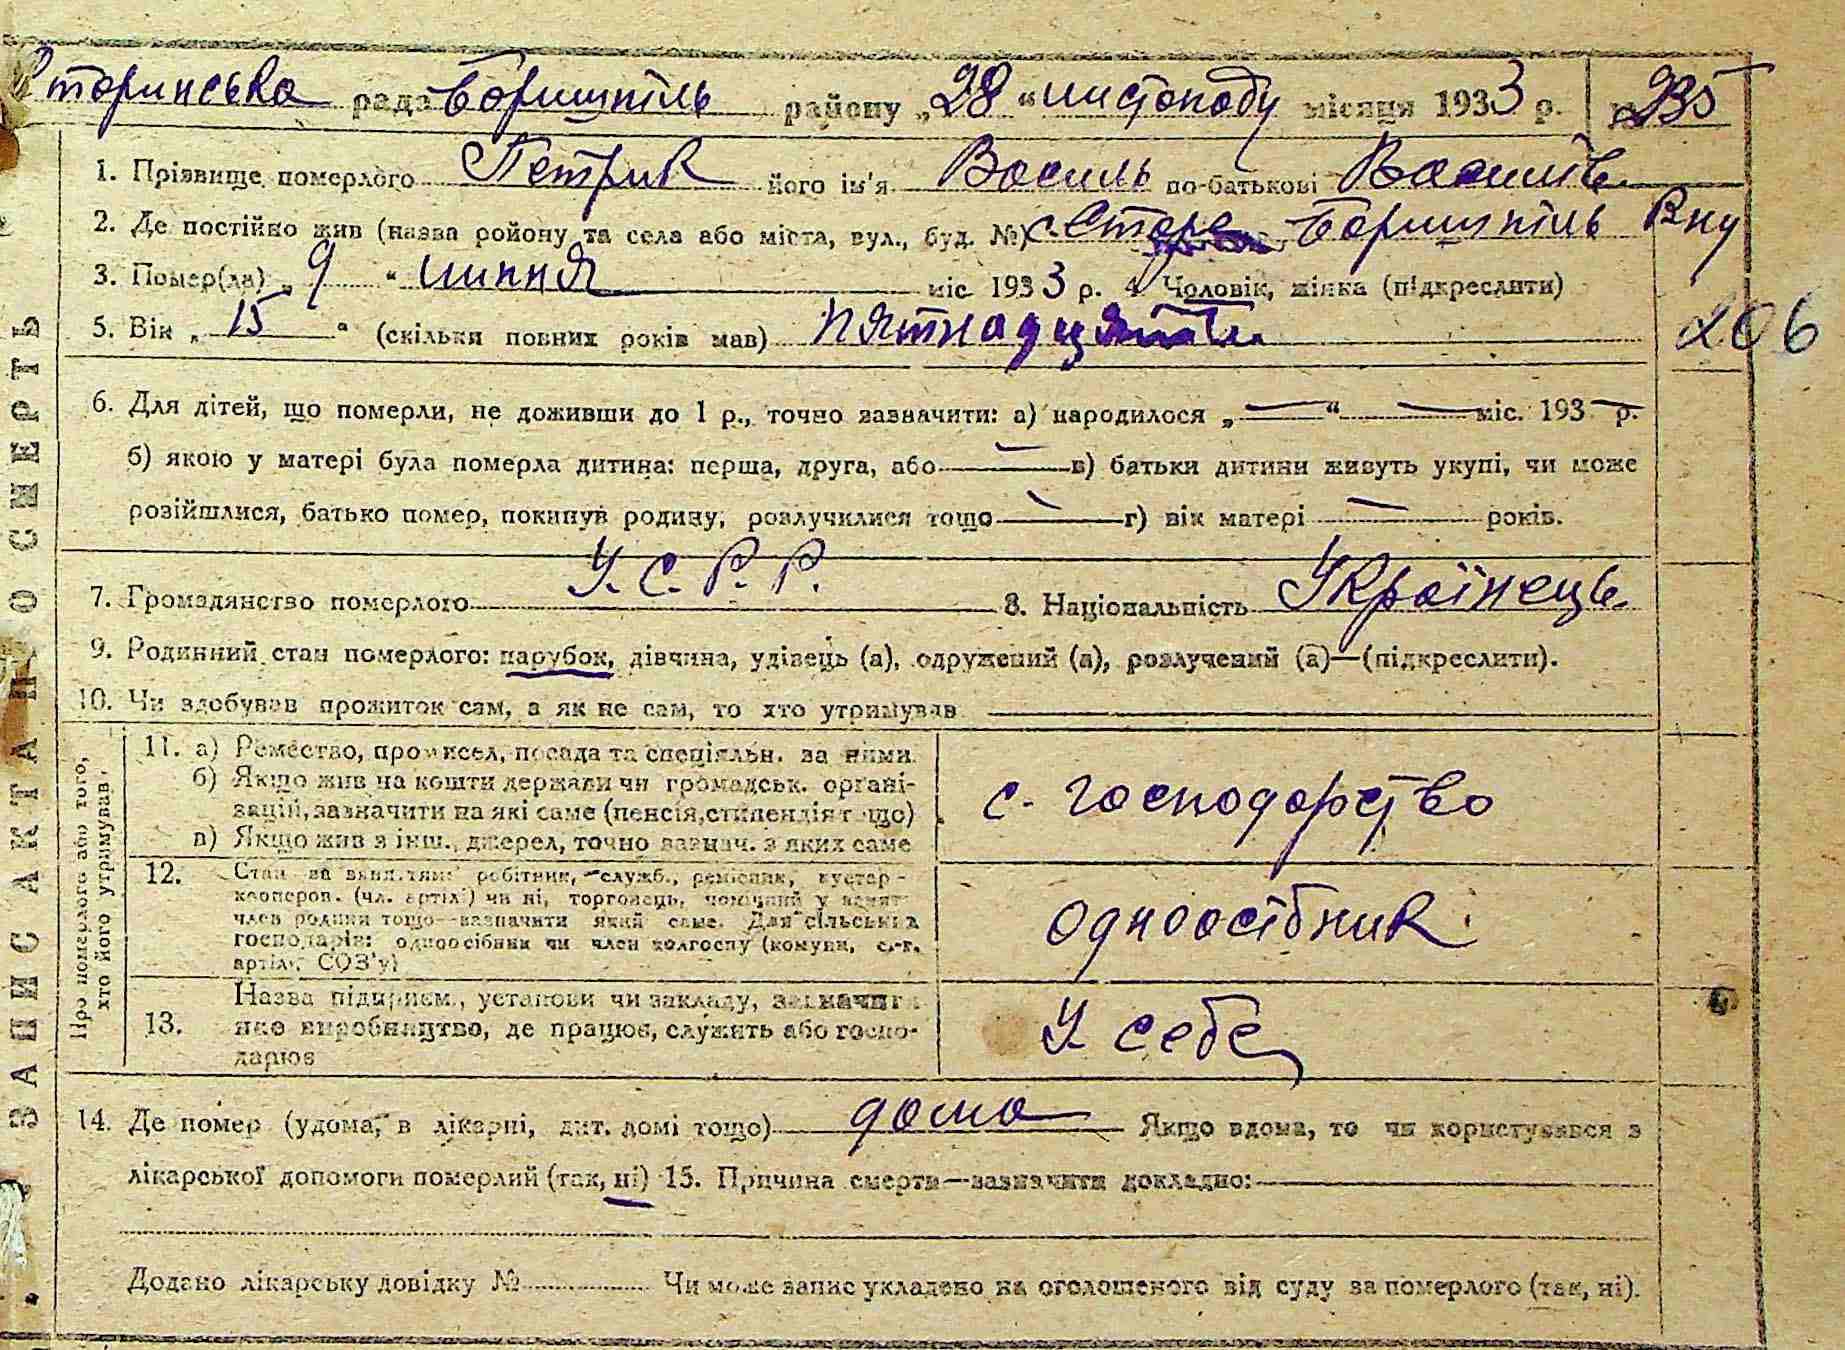 Старинська рада Боришпіль району „28“ листопаду місяця 1933 р. № 235
1. Прізвище померлого Петрик його ім'я Василь по-батькові Василів
2. Де постійно жив (назва району та села або міста, вул., буд. №) с. Старе Боришпіль Рну
3. Помер(ла) „9“ липня міс 1933 р. 4 Чоловік, жінка (підкреслити)
5. Вік „15“ (скільки повних років мав) пятнадцять
206
6. Для дітей, що померли, не доживши до 1 р., точно зазначити: а) народилося „—“ — міс. 193— р.
б) якою у матері була померла дитина: перша, друга, або — в) батьки дитини живуть укупі, чи може
розійшлися, батько помер, покинув родину, розлучилися тощо — г) вік матері — років.
7. Громадянство померлого У.С.Р.Р. 8. Національність Українець.
9. Родинний стан померлого: парубок, дівчина, удівець (а), одружений (а), розлучений (а)—(підкреслити).
10. Чи здобував прожиток сам, а як не сам, то хто утримував
Про померлого або того, хто його утримував.
11. а) Ремество, промисел, посада та спеціяльн. за ними.
б) Якщо жив на кошти держави чи громадськ. органі-
зацій, зазначити на які саме (пенсія, стипендія тощо)
в) Якщо жив з інш. джерел, точно зазнач. з яких саме
с. господарство
12. Стан за заняттям: робітник, служб., ремісник, кустар-
кооперов. (чл. артілі) чи ні, торговець,
член родини тощо—зазначити який саме. Для сільських
господарів: одноосібник чи член колгоспу (комуни, с.-г.
артілі, СОЗ'у)
одноосібник.
13. Назва підприєм., установи чи закладу, зазначити
яке виробництво, де працює, служить або госпо-
дарює
У себе
14. Де помер (удома, в лікарні, дит. домі тощо) дома Якщо вдома, то чи користувався з
лікарської допомоги померлий (так, ні) 15. Причина смерти—зазначити докладно:
Додано лікарську довідку № Чи може запис укладено на оголошеного від суду за померлого (так, ні).
ЗАПИС АКТА ПРО СМЕРТЬ